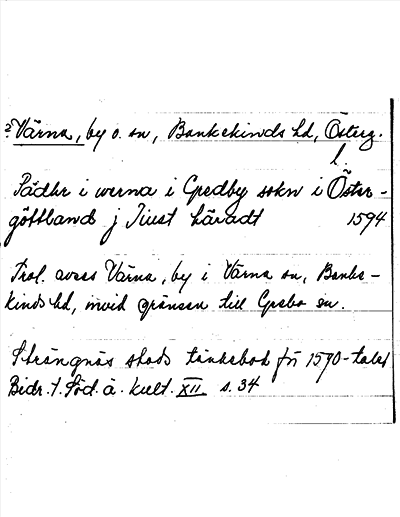 ? Värna, by o. sn, Bankekinds hd, Österg.
l.
Pädhr i werna i Gredby sokn i Öster-
göttland j Tiust häradt 1594
Trol. avses Värna, by i Värna sn, Banke-
kinds hd, invid gränsen till Grebo sn.
Strängnäs stads tänkebok för 1590-talet
Bidr. t. Söd. ä. kult. XII s. 34